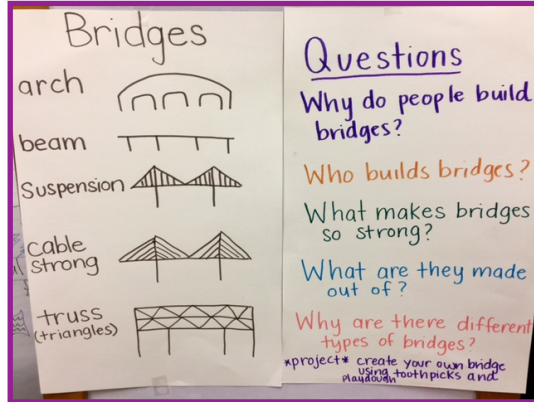 Bridges
arch
beam
Suspension
cable
strong
truss
(triangles)
Questions
Why do people build
bridges?
Who builds bridges?
What makes bridges
so strong?
What are they made
out of?
Why are there different
types of bridges?
*project* create your own bridge
using toothpicks and
playdough